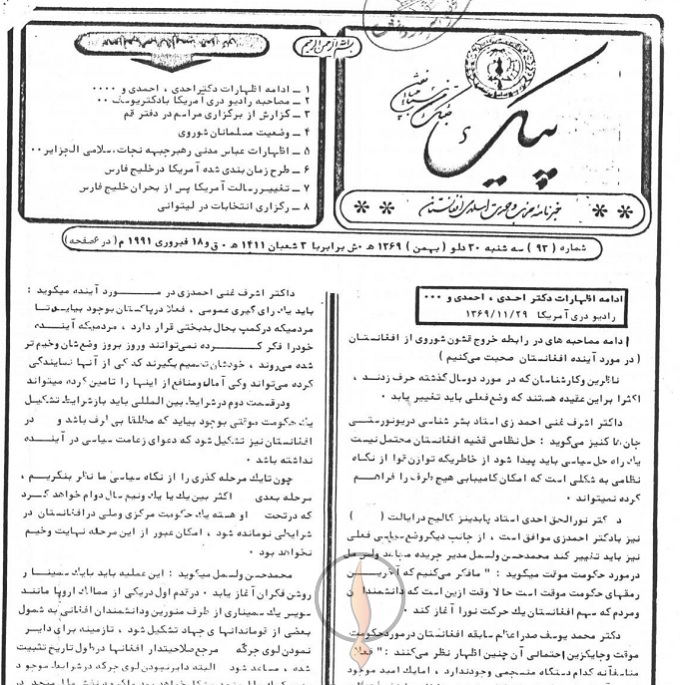 بسم الله الرحمن الرحیم
پیک
خبرنامه حزب وحدت اسلامی افغانستان
۱ ـ ادامه اظهارات دکتر احدی ، احمدی و ۰۰۰۰
۲ ـ مصاحبه رادیو دری آمریکا بادکتریوسف ۰۰
۳ ـ گزارش از برگزاری مراسم در دفتر قم
۴ ـ وضعیت مسلمانان شوروی
۵ ـ اظهارات عباس مدنی رهبرجبهه نجات اسلامی الجزایر ۰۰
۶ ـ طرح زمان بندی شده آمریکا درخلیج فارس
۷ ـ تغییررسالت آمریکا پس از بحران خلیج فارس
۸ ـ رگزاری انتخابات در لیتوانی
شماره ( ۹۲ ) سه شنبه ۳۰ دلو ( بهمن ) ۱۳۶۹ ه ۰ش برابربا ۳ شعبان ۱۴۱۱ ه ۰ ق و ۱۸ فبروری ۱۹۹۱ م ( در ۶ صفحه )
ادامه اظهارات دکتر احدی ، احمدی و ۰۰۰
رادیو دری آمریکا ۱۳۶۹/۱۱/۲۹
ادامه مصاحبه های در رابطه خروج قشون شوروی از افغانستان
( در مورد آینده افغانستان صحبت می‌کنیم )
ناظرین وکارشناسان که در مورد دوسال گذشته حرف زدند ،
اکثرا براین عقیده هستند که وضع فعلی باید تغییر یابد ۰
داکتر اشرف غنی احمد زی استاد بشر شناسی دریونورستی
جان ها کنیز می‌گوید : حل نظامی قضیه افغانستان محتمل نیست
یک راه حل سیاسی باید پیدا شود از خاطریکه توازن قوا از نگاه
نظامی به شکلی است که امکان کامیابی هیچ طرف را فراهم
کرده نمیتواند ۰
د کتر نورالحق احدی استاد پابدینز کالیج درایالت ( )
نیز بادکتر احمدزی موافق است ، از جانب دیگروضع سیاسی فعلی
نیز باید تغییر کند محمدحسن ولسمل مدیر جریده
درمورد حکومت موقت میگوید : " مافکر می‌کنیم که
رمقهای حکومت موقت است حالا وقت ازین است که دانشمندان
ومردم که سهم افغانستان یک حرکت نورا آغاز کند ۰
دکتر محمد یوسف صدراعظم سابقه افغانستان در مورد حکومت
موقت وجایگزین احتمالی آن چنین اظهار نظر می‌کنند : "
متاسفانه کدام دستگاه منسجمی وجودندارد ، امایک امید موجود
داکتر اشرف غنی احمدزی در مورد آینده میگوید :
باید یک رای گیری عمومی ، فعلا درپاکستان بوجود بیاید تا
مردمیکه درکمپ بحال بدبختی قرار دارد ، مردمیکه آینده
خودرا فکر کرده نمی‌توانند وروز بروز وضع شان وخیم تر
شده می‌روند ، خودشان تصمیم بگیرند که کی از آنها نمایندگی
کرده می‌تواند وکی آمال ومنافع از اینها را تامین کرده میتواند
ودرقسمت دوم درشرایط بین المللی باید بازشرایط تشکیل
یک حکومت موقتی بوجود بیاید که مطلقا بی طرف باشد و در
افغانستان نیز تشکیل شود که دعوای زعامت سیاسی در آینده
نداشته باشد ۰
چون تایک مرحله گذری را از نگاه سیاسی ما نظر بنگریم ،
مرحله بعدی اکثر بین یک یا یک ونیم سال دوام خواهد کرد
که درتحت او هسته یک حکومت مرکزی وملی درافغانستان در
شرایطی نومانده شود ، امکان عبور از این مرحله نهایت وخیم
نخواهد بود ۰
محمدحسن ولسمل میگوید : این عملیه باید بایک سمینار
روشن فکران آغاز یابد ۰ درقدم اول دریکی از ممالک اروپا مانند
سویس یک سمیناری از طرف منورین ودانشمندان افغانی به شمول
بعضی از قوماندانهای جهاد تشکیل شود ، تازمینه برای دایر
نمودن لوی جرگه مرجع صلاحیتدار افغانها درطول تاریخ تثبیت
شده ، مساعد شود البته دایرنمودن لوی جرگه درشرایط موجود